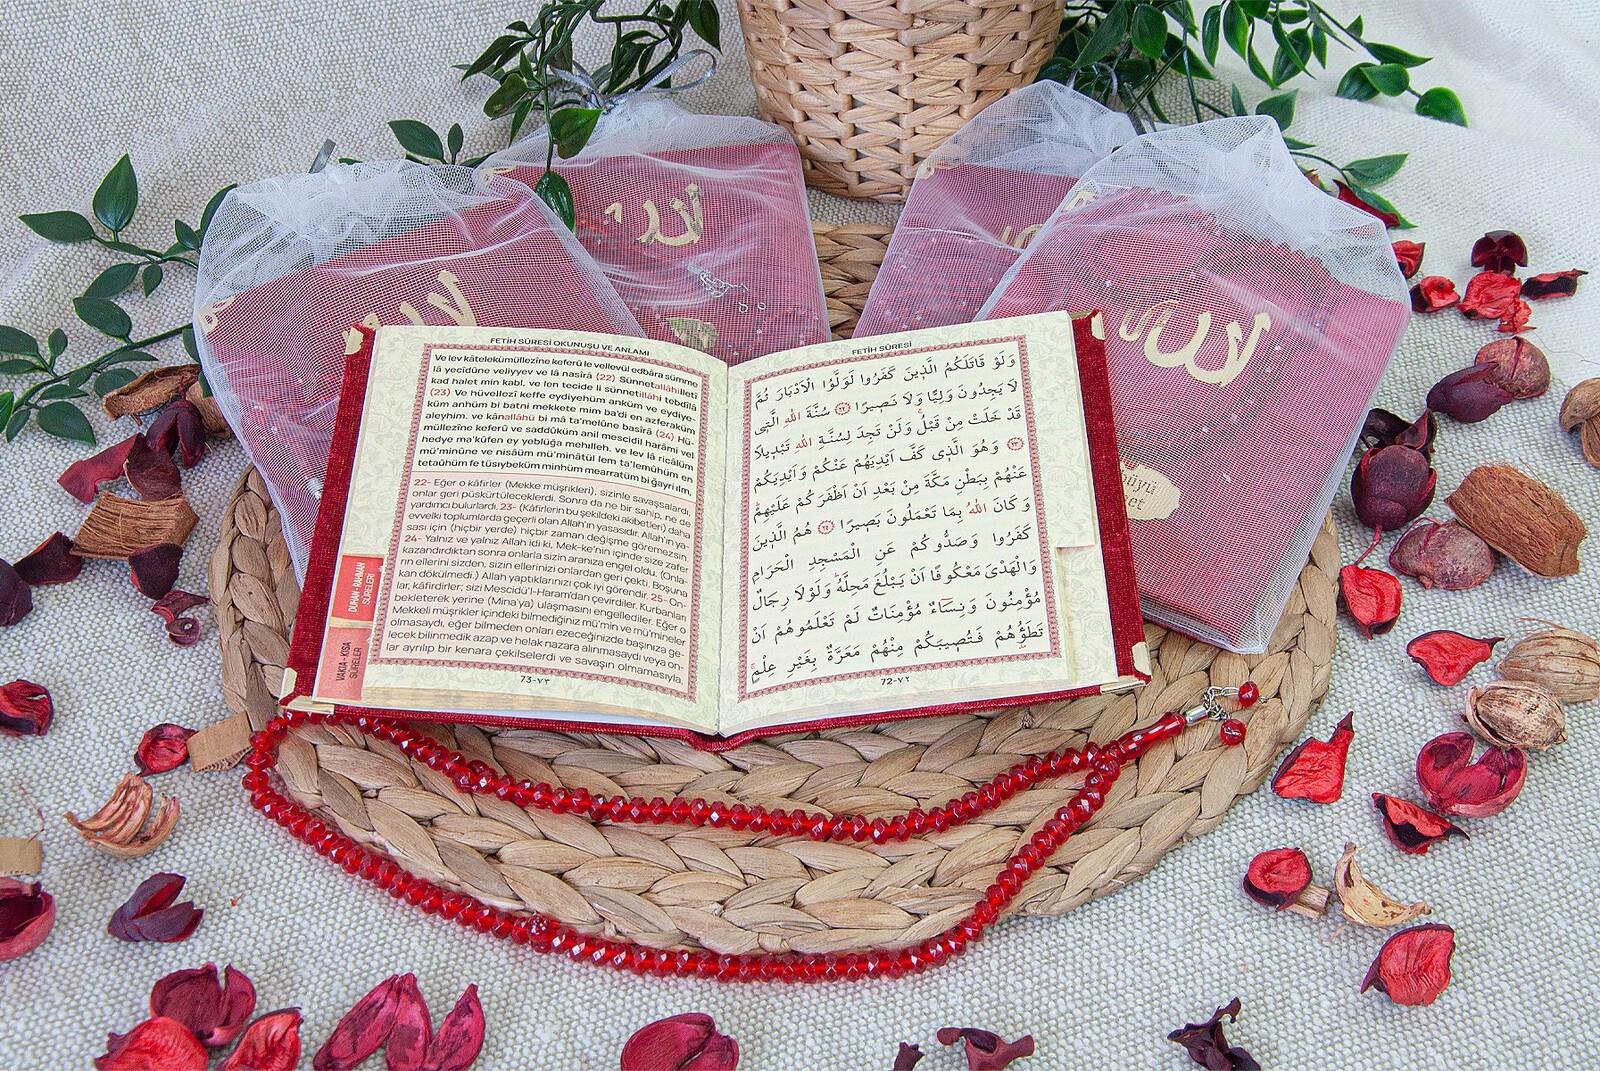 FETİH SÛRESİ OKUNUŞU VE ANLAMI
Ve lev kâtelekümüllezîne keferû le vellevül edbâra sümme
lâ yecidûne veliyyev ve lâ nasîrâ (22) Sünnetallâhilletî
kad halet min kabl. ve len tecide li sünnetillâhi tebdîlâ
(23) Ve hüvellezî keffe eydiyehüm anküm ve eydiye-
küm anhüm bi batni mekkete mim ba'di en azferaküm
aleyhim. ve kânallâhü bi mâ ta'melûne basîrâ (24) Hü-
müllezîne keferû ve saddûküm anil mescidil harâmi vel
hedye ma'kûfen ey yeblüğa mehılleh. ve lev lâ ricâlüm
mü'minûne ve nisâüm mü'minâtül lem ta'lemûhüm en
tetaûhüm fe tüsıybeküm minhüm mearratüm bi ğayri ılm,
22- Eğer o kâfirler (Mekke müşrikleri), sizinle savaşsalardı,
onlar geri püskürtüleceklerdi. Sonra da ne bir sahip, ne de
yardımcı bulurlardı. 23- (Kâfirlerin bu şekildeki akıbetleri) daha
evvelki toplumlarda geçerli olan Allah'ın yasasıdır. Allah'ın ya-
sası için (hiçbir yerde) hiçbir zaman değişme göremezsin
24- Yalnız ve yalnız Allah idi ki, Mek-ke'nin içinde size zafer
kazandırdıktan sonra onlarla sizin aranıza engel oldu, (Onla-
rın ellerini sizden, sizin ellerinizi onlardan geri çekti. Boşuna
kan dökülmedi.) Allah yaptıklarınızı çok iyi görendir. 25- On-
lar, kâfirdirler; sizi Mescidü'l-Haram'dan çevirdiler. Kurbanları
bekleterek yerine (Mina'ya) ulaşmasını engellediler. Eğer o
Mekkeli müşrikler içindeki bilmediğiniz mü'min ve mü'mineler
olmasaydı, eğer bilmeden onları ezeceğinizde başınıza ge-
lecek bilinmedik azap ve helak nazara alınmasaydı veya on-
lar ayrılıp bir kenara çekilselerdi ve savaşın olmamasıyla,
73-٧٣
DUHAN - RAHMAN
SÛRELERİ
VAKIA - KISA
SÛRELER
FETİH SÛRESİ
وَلَوْ قَاتَلَكُمُ الَّذِينَ كَفَرُوا لَوَلَّوُا الْاَدْبَارَ ثُمَّ
لَا يَجِدُونَ وَلِيًّا وَلَا نَصِيرًا ﴿٢٢﴾ سُنَّةَ اللّٰهِ الَّتِى
قَدْ خَلَتْ مِنْ قَبْلُ وَلَنْ تَجِدَ لِسُنَّةِ اللّٰهِ تَبْدِيلًا
﴿٢٣﴾ وَهُوَ الَّذِى كَفَّ اَيْدِيَهُمْ عَنْكُمْ وَاَيْدِيَكُمْ
عَنْهُمْ بِبَطْنِ مَكَّةَ مِنْ بَعْدِ اَنْ اَظْفَرَكُمْ عَلَيْهِمْ
وَكَانَ اللّٰهُ بِمَا تَعْمَلُونَ بَصِيرًا ﴿٢٤﴾ هُمُ الَّذِينَ
كَفَرُوا وَصَدُّوكُمْ عَنِ الْمَسْجِدِ الْحَرَامِ
وَالْهَدْىَ مَعْكُوفًا اَنْ يَبْلُغَ مَحِلَّهُ وَلَوْلَا رِجَالٌ
مُؤْمِنُونَ وَنِسَاءٌ مُؤْمِنَاتٌ لَمْ تَعْلَمُوهُمْ اَنْ
تَطَؤُهُمْ فَتُصِيبَكُمْ مِنْهُمْ مَعَرَّةٌ بِغَيْرِ عِلْمٍ
72-٧٢
الله
الله
الله